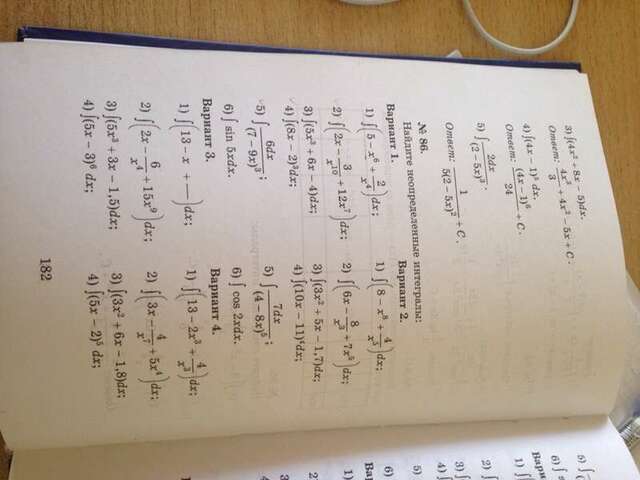 3) ∫(4x² + 8x − 5)dx.
Ответ: 4x³/3 + 4x² − 5x + C.
4) ∫(4x − 1)⁵ dx.
Ответ: (4x − 1)⁶/24 + C.
5) ∫ 2dx/(2 − 5x)³.
Ответ: 1/(5(2 − 5x)²) + C.
№ 86.
Найдите неопределенные интегралы:
Вариант 1.
1) ∫(5 − x⁶ + 2/x⁴)dx;
2) ∫(2x − 3/x¹⁰ + 12x⁷)dx;
3) ∫(5x³ + 6x − 4)dx;
4) ∫(8x − 2)³dx;
5) ∫ 6dx/(7 − 9x)³;
6) ∫ sin 5xdx.
Вариант 2.
1) ∫(8 − x⁸ + 4/x⁵)dx;
2) ∫(6x − 8/x³ + 7x⁵)dx;
3) ∫(3x² + 5x − 1,7)dx;
4) ∫(10x − 11) dx;
5) ∫ 7dx/(4 − 8x)⁵;
6) ∫ cos 2xdx.
Вариант 3.
1) ∫(13 − x + —)dx;
2) ∫(2x − 6/x⁴ + 15x⁹)dx;
3) ∫(5x³ + 3x − 1,5)dx;
4) ∫(5x − 3)⁶ dx;
Вариант 4.
1) ∫(13 − 2x³ + 4/x³)dx;
2) ∫(3x − 4/x⁷ + 5x⁴)dx;
3) ∫(3x² + 6x − 1,8)dx;
4) ∫(5x − 2)⁵ dx;
182